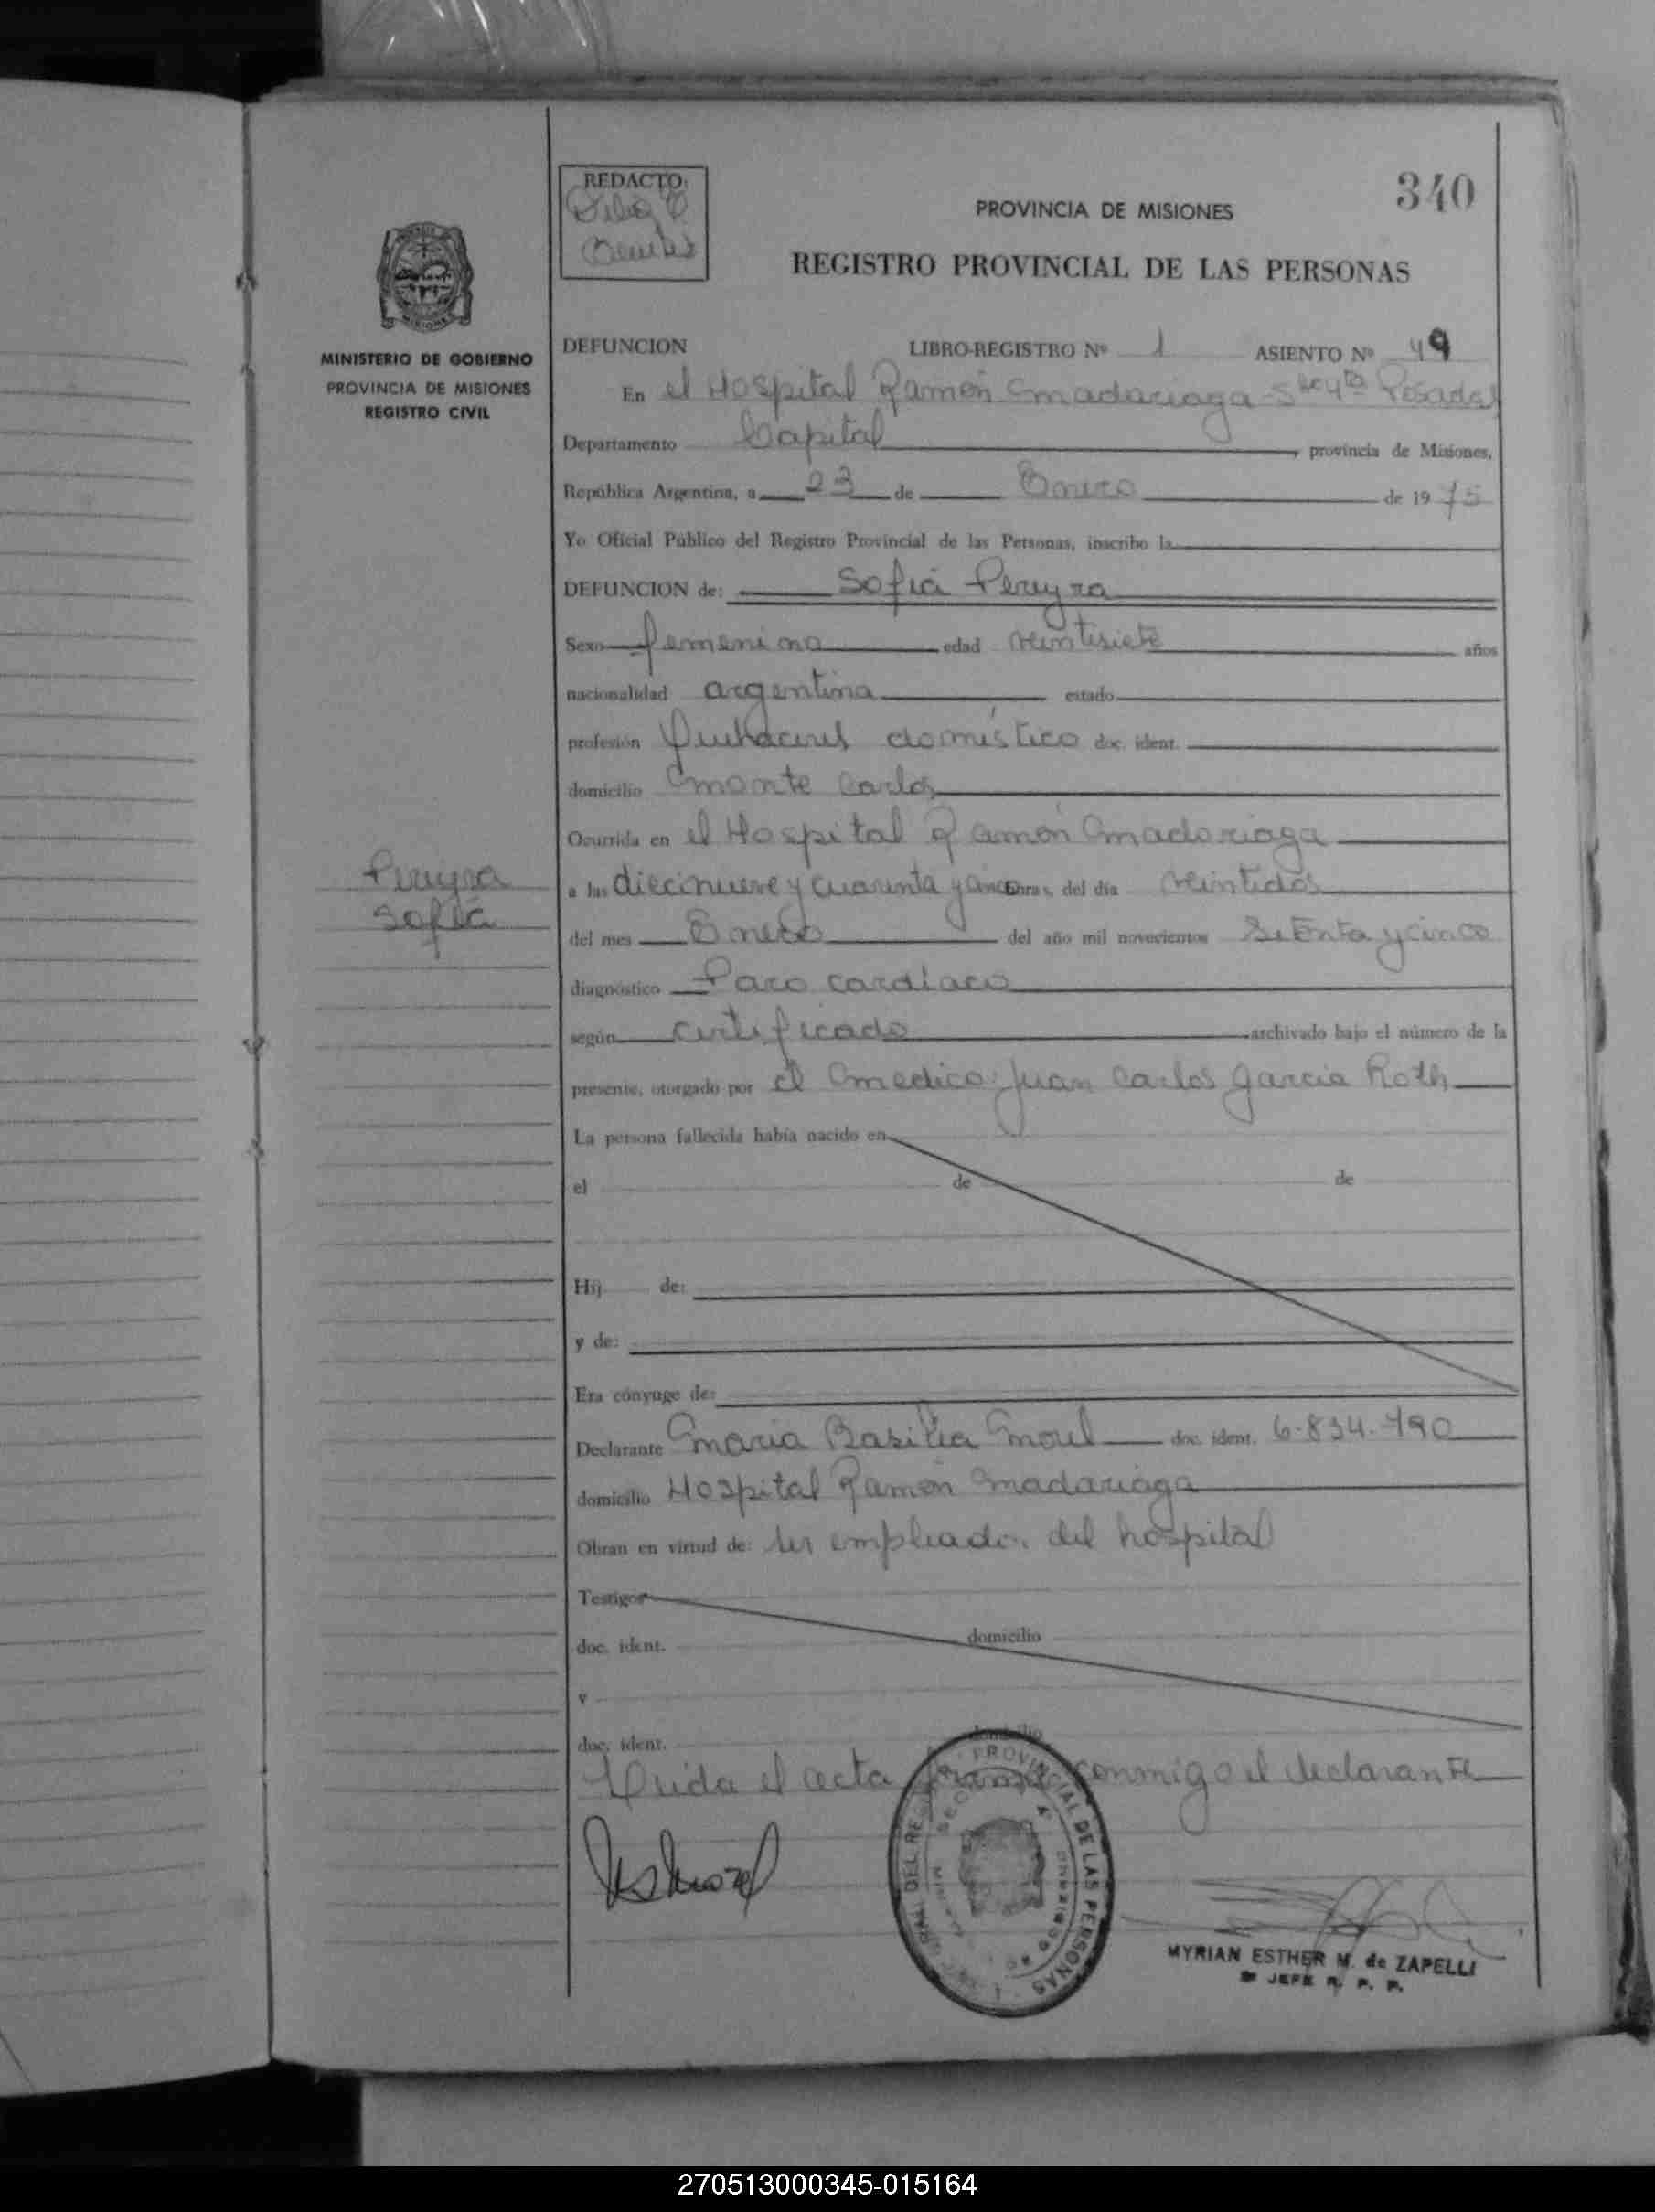 340
REDACTO:
Benitez
PROVINCIA DE MISIONES
REGISTRO PROVINCIAL DE LAS PERSONAS
MINISTERIO DE GOBIERNO
PROVINCIA DE MISIONES
REGISTRO CIVIL
DEFUNCION LIBRO-REGISTRO Nº 1 ASIENTO Nº 49
En el Hospital Ramón Madariaga - Sec 4ta Posadas
Departamento Capital, provincia de Misiones,
República Argentina, a 23 de Enero de 1975
Yo Oficial Público del Registro Provincial de las Personas, inscribo la
DEFUNCION de: Sofia Pereyra
Sexo femenino edad veintisiete años
nacionalidad argentina estado
profesión Quehaceres doméstico doc. ident.
domicilio Monte Carlos
Ocurrida en el Hospital Ramón Madariaga
Pereyra
Sofia
a las diecinueve y cuarenta y cinco horas, del día veintidos
del mes Enero del año mil novecientos setenta y cinco
diagnóstico Paro cardíaco
según certificado archivado bajo el número de la
presente, otorgado por el medico: Juan Carlos Garcia Roth
La persona fallecida había nacido en
el de de
Hij de:
y de:
Era cónyuge de:
Declarante Maria Basilia Morel doc. ident. 6.834.490
domicilio Hospital Ramón Madariaga
Obran en virtud de: ser empleado del hospital
Testigos
doc. ident. domicilio
y
doc. ident. domicilio
Leida el acta firma conmigo el declarante
PROVINCIAL DE LAS PERSONAS
MYRIAN ESTHER M. de ZAPELLI
JEFE R. P. P.
270513000345-015164